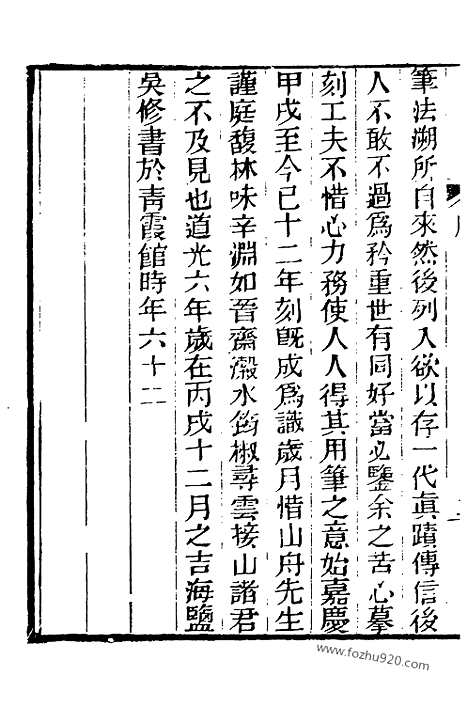 筆法溯所自來然後列入欲以存一代眞蹟傳信後
人不敢不過爲矜重世有同好當必鑒余之苦心摹
刻工夫不惜心力務使人人得其用筆之意始嘉慶
甲戌至今已十二年刻既成爲識歲月惜山舟先生
謹庭馥林味辛淵如晉齋瀔水筠椒尋雲接山諸君
之不及見也道光六年歲在丙戌十二月之吉海鹽
吳修書於靑霞館時年六十二
www.fozhu920.com